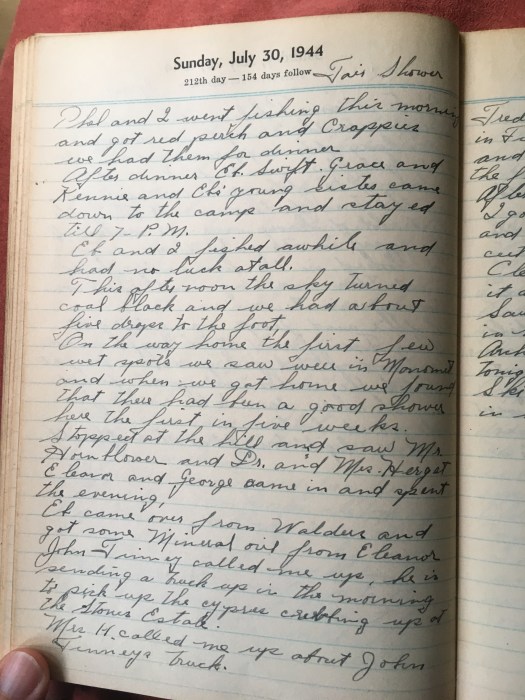 Sunday, July 30, 1944
212th day — 154 days follow Fair Shower
Phil and I went fishing this morning
and got red perch and Crappies
we had them for dinner
After dinner Eb. Swift. Grace and
Kennie and Ebs' young sister came
down to the camp and stayed
till 7 - P.M.
Eb and I fished awhile and
had no luck atall.
This afternoon the sky turned
coal black and we had about
five drops to the foot,
On the way home the first few
wet spots we saw were in Monomet
and when we got home we found
that there had been a good shower
here the first in five weeks.
Stopped at the hill and saw Mr.
Hornblower and Dr. and Mrs. Herget
Eleanor and George came in and spent
the evening,
Eb came over from Walders and
got some Mineral oil from Eleanor
John Finney called me up, he is
sending a truck up in the morning
to pick up the cypress cribbing up at
the Stone Estate.
Mrs H. called me up about John
Finneys truck.
in
and
the
I
and
it
in
tonig
in